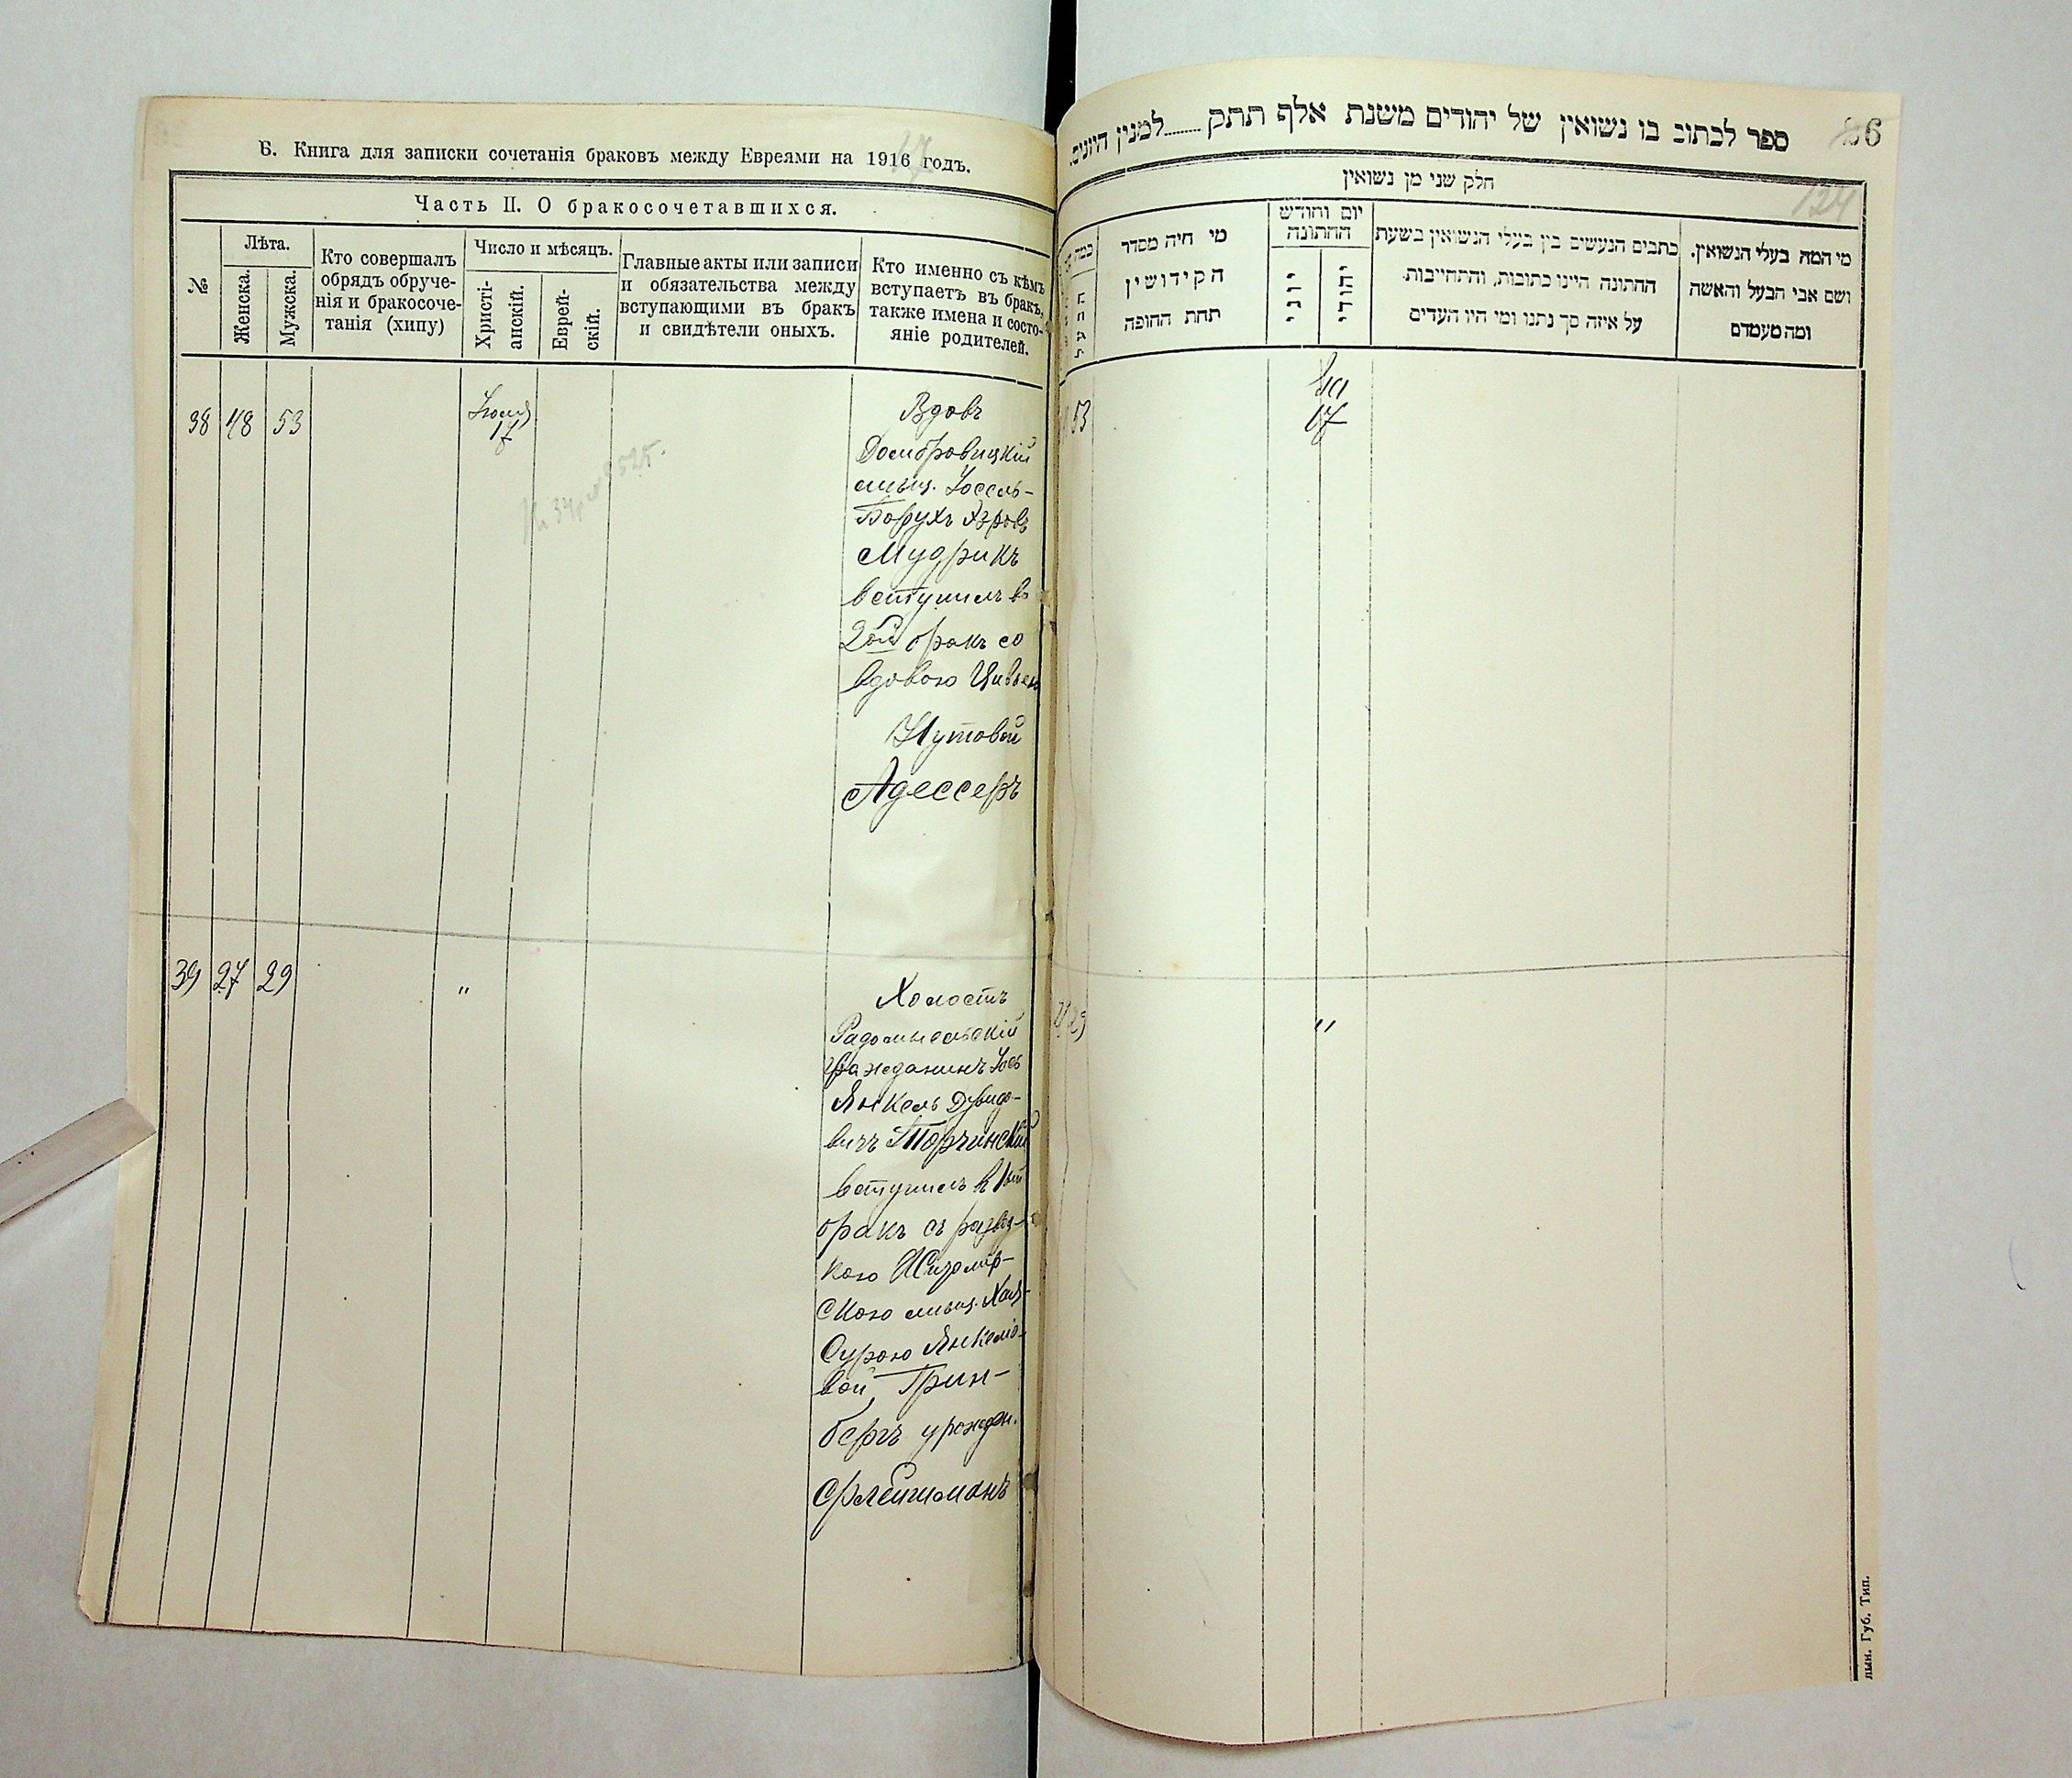 Б. Книга для записки сочетанія браковъ между Евреями на 1916 годъ.
17
Часть II. О бракосочетавшихся.
№
Лѣта.
Женска.
Мужска.
Кто совершалъ
обрядъ обруче-
нія и бракосоче-
танія (хипу)
Число и мѣсяцъ.
Христі-
анскій.
Еврей-
скій.
Главные акты или записи
и обязательства между
вступающими въ бракъ
и свидѣтели оныхъ.
Кто именно съ кѣмъ
вступаетъ въ бракъ,
также имена и состо-
яніе родителей.
38 48 53
17
Вдовъ
Домбровицкій
мѣщ. Іоссель-
Борухъ
Мудрикъ
вступилъ въ
2ой бракъ со
вдовою
Нутовой
Адессеръ
39 27 29
"
Холостъ
Радомысльскій
гражданинъ Іось
Янкель Дувидо-
вичъ Торчинскій
вступилъ в 1ый
бракъ съ развед-
кою Житомір-
скою мѣщ. Хая-
Сурою Янкеліо-
вой Грин-
бергъ урожден.
Флейшманъ
ספר לכתוב בו נשואין של יהודים משנת אלף תתק........למנין היונים.
86
124
חלק שני מן נשואין
מי היה מסדר
הקידושין
תחת החופה
יום וחודש
החתונה
יוני
יהודי
כתבים הנעשים בין בעלי הנשואין בשעת
החתונה היינו כתובות, והתחייבות
על איזה סך נתנו ומי היו העדים
מי המה בעלי הנשואין.
ושם אבי הבעל והאשה
ומה מעמדם
53
17
"
лын. Губ. Тип.